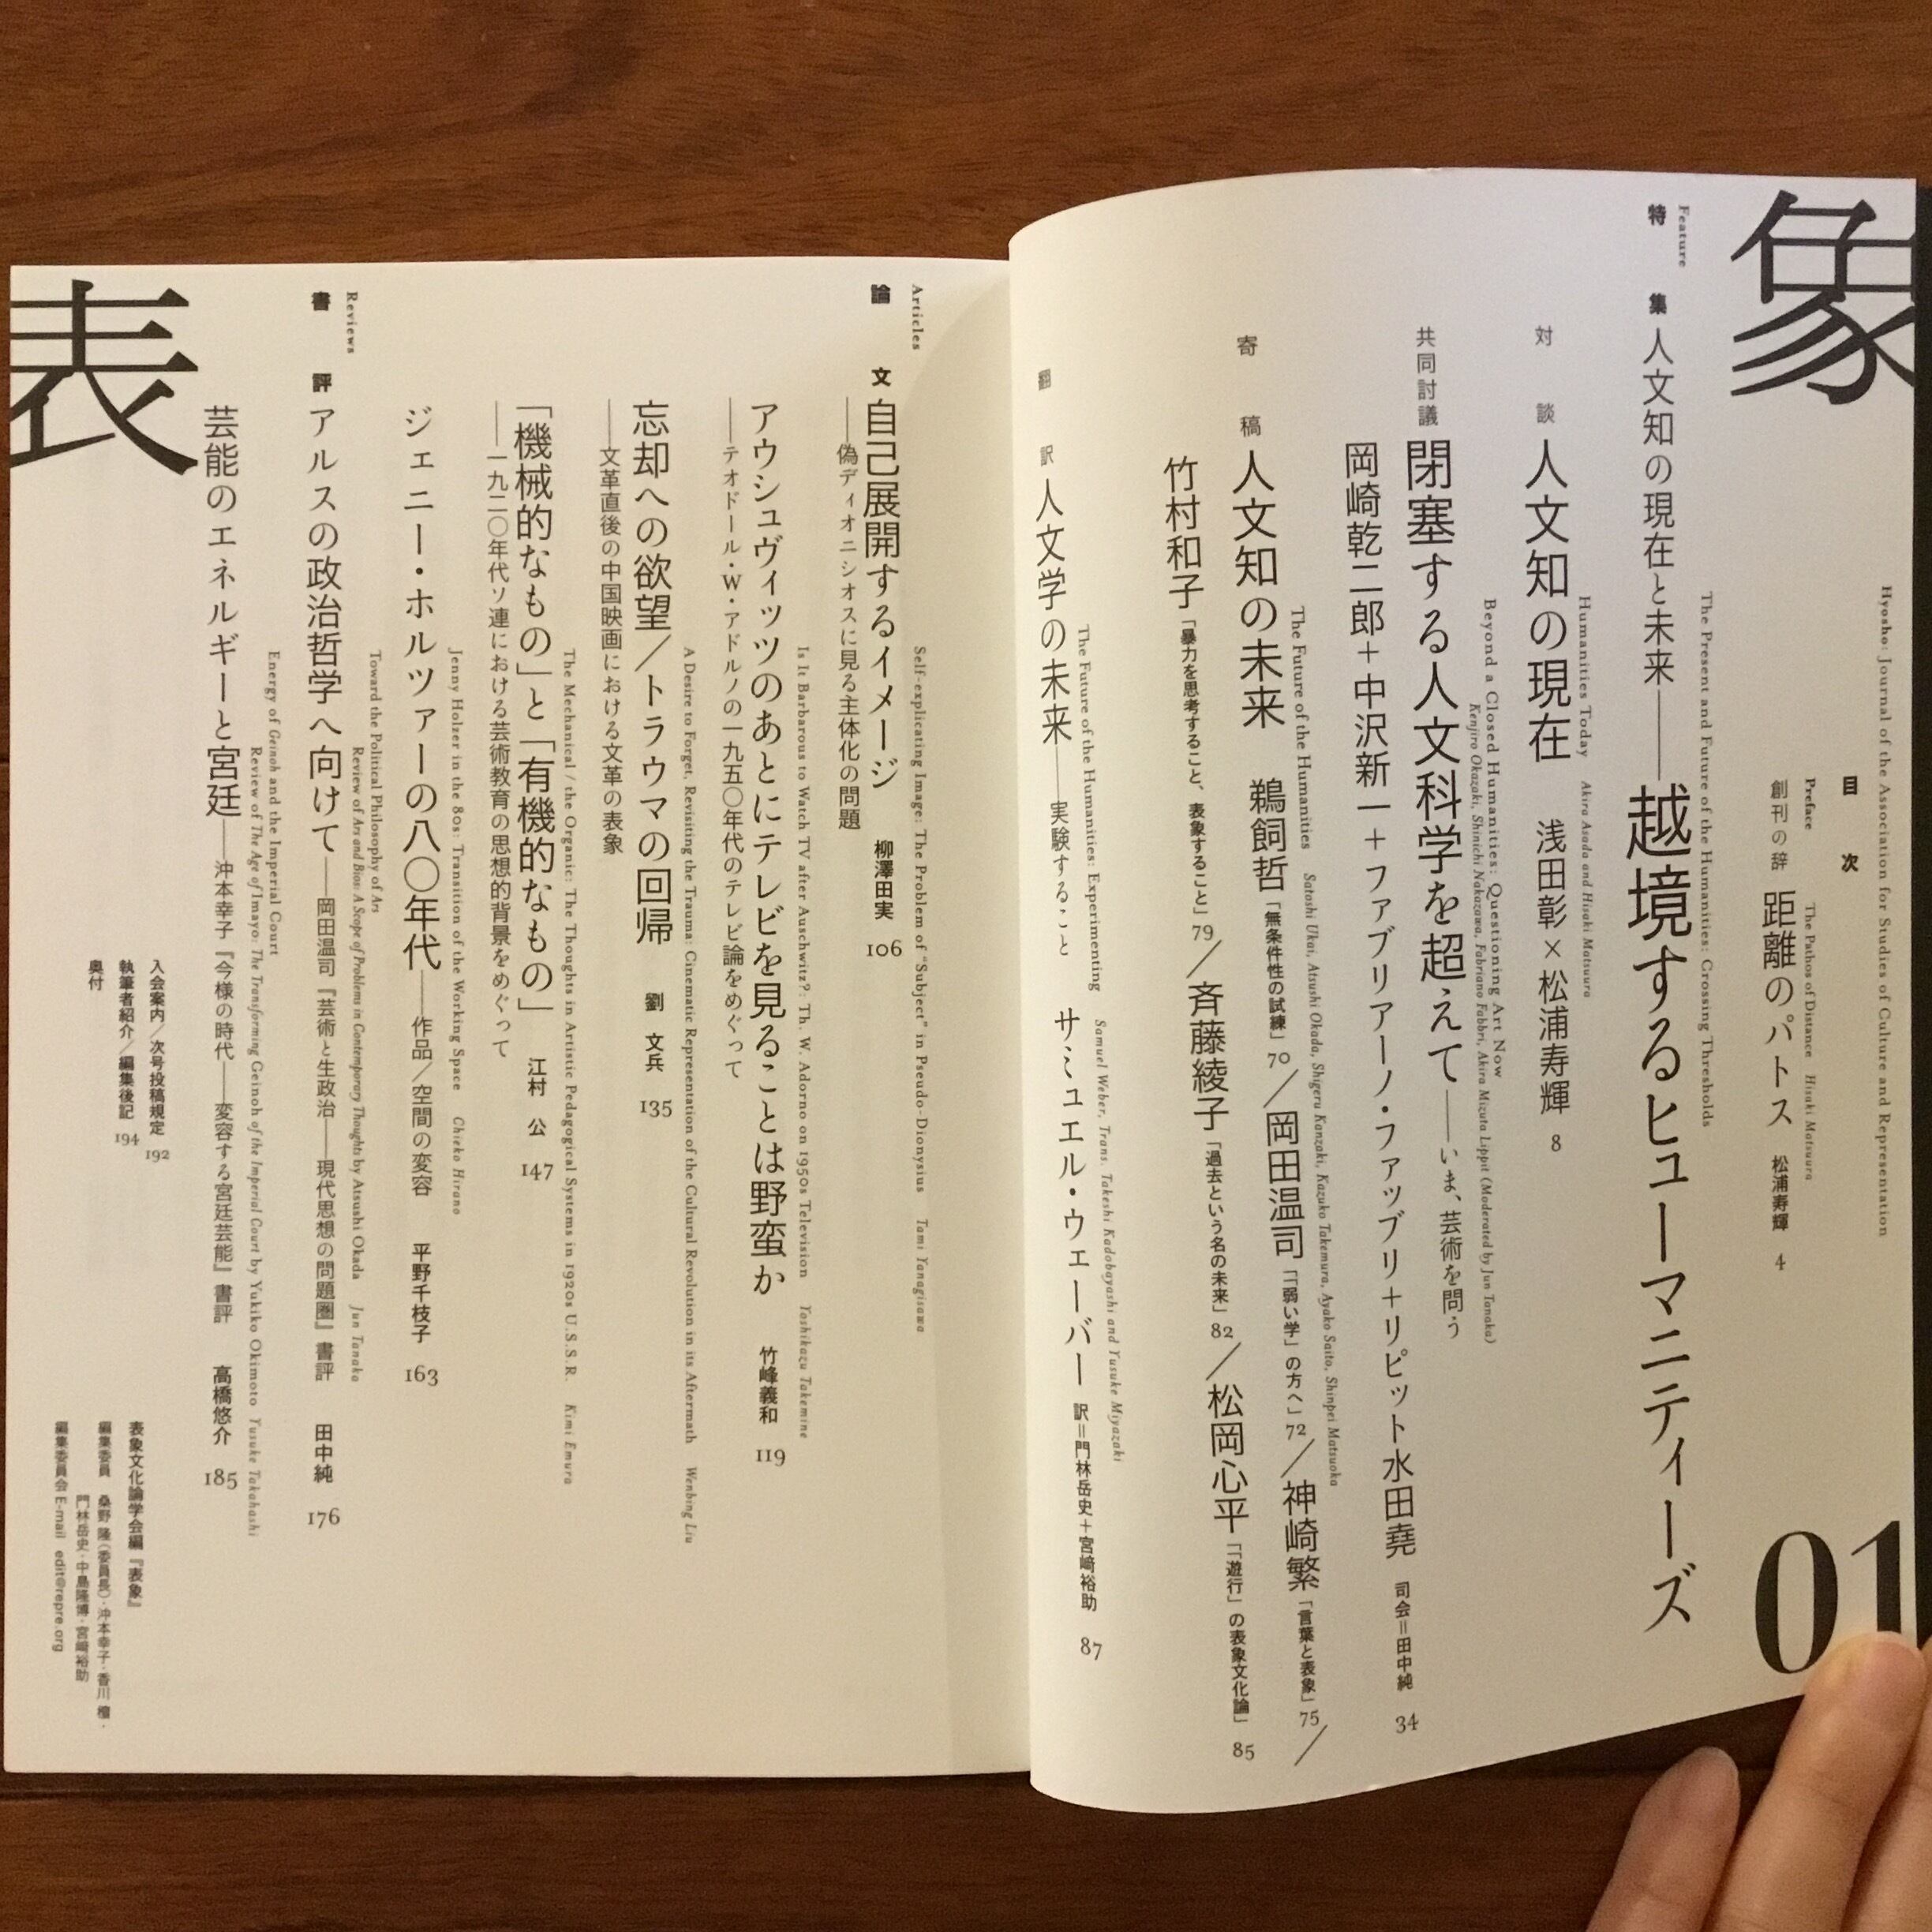 象
01
Hyosho: Journal of the Association for Studies of Culture and Representation
目次
Preface The Pathos of Distance Hisaki Matsuura
創刊の辞 距離のパトス 松浦寿輝 4
Feature The Present and Future of the Humanities: Crossing Thresholds
特集 人文知の現在と未来――越境するヒューマニティーズ
Humanities Today Akira Asada and Hisaki Matsuura
対談 人文知の現在 浅田彰×松浦寿輝 8
Beyond a Closed Humanities: Questioning Art Now
Kenjiro Okazaki, Shinichi Nakazawa, Fabriano Fabbri, Akira Mizuta Lippit (Moderated by Jun Tanaka)
共同討議 閉塞する人文科学を超えて――いま、芸術を問う
岡崎乾二郎+中沢新一+ファブリアーノ・ファッブリ+リピット水田堯 司会=田中純 34
The Future of the Humanities Satoshi Ukai, Atsushi Okada, Shigeru Kanzaki, Kazuko Takemura, Ayako Saito, Shinpei Matsuoka
寄稿 人文知の未来 鵜飼哲「無条件性の試練」70/岡田温司「「弱い学」の方へ」72/神崎繁「言葉と表象」75/
竹村和子「暴力を思考すること、表象すること」79/斉藤綾子「過去という名の未来」82/松岡心平「「遊行」の表象文化論」85
The Future of the Humanities: Experimenting Samuel Weber, Trans. Takeshi Kadobayashi and Yusuke Miyazaki
翻訳 人文学の未来――実験すること サミュエル・ウェーバー 訳=門林岳史+宮﨑裕助 87
Articles Self-explicating Image: The Problem of "Subject" in Pseudo-Dionysius Tami Yanagisawa
論文 自己展開するイメージ
――偽ディオニシオスに見る主体化の問題 柳澤田実 106
Is It Barbarous to Watch TV after Auschwitz?: Th. W. Adorno on 1950s Television Yoshikazu Takemine
アウシュヴィッツのあとにテレビを見ることは野蛮か
――テオドール・W・アドルノの一九五〇年代のテレビ論をめぐって 竹峰義和 119
A Desire to Forget, Revisiting the Trauma: Cinematic Representation of the Cultural Revolution in its Aftermath Wenbing Liu
忘却への欲望/トラウマの回帰
――文革直後の中国映画における文革の表象 劉文兵 135
The Mechanical / the Organic: The Thoughts in Artistic Pedagogical Systems in 1920s U.S.S.R. Kimi Emura
「機械的なもの」と「有機的なもの」
――一九二〇年代ソ連における芸術教育の思想的背景をめぐって 江村公 147
Jenny Holzer in the 80s: Transition of the Working Space Chieko Hirano
ジェニー・ホルツァーの八〇年代――作品/空間の変容 平野千枝子 163
Reviews Toward the Political Philosophy of Ars
Review of Ars and Bios: A Scope of Problems in Contemporary Thoughts by Atsushi Okada Jun Tanaka
書評 アルスの政治哲学へ向けて――岡田温司『芸術と生政治――現代思想の問題圏』書評 田中純 176
Energy of Geinoh and the Imperial Court
Review of The Age of Imayo: The Transforming Geinoh of the Imperial Court by Yukiko Okimoto Yusuke Takahashi
芸能のエネルギーと宮廷――沖本幸子『今様の時代――変容する宮廷芸能』書評 高橋悠介 185
入会案内/次号投稿規定 192
執筆者紹介/編集後記 194
奥付
表象文化論学会編『表象』
編集委員 桑野隆(委員長)・沖本幸子・香川檀・
門林岳史・中島隆博・宮﨑裕助
編集委員会 E-mail edit@repre.org
表